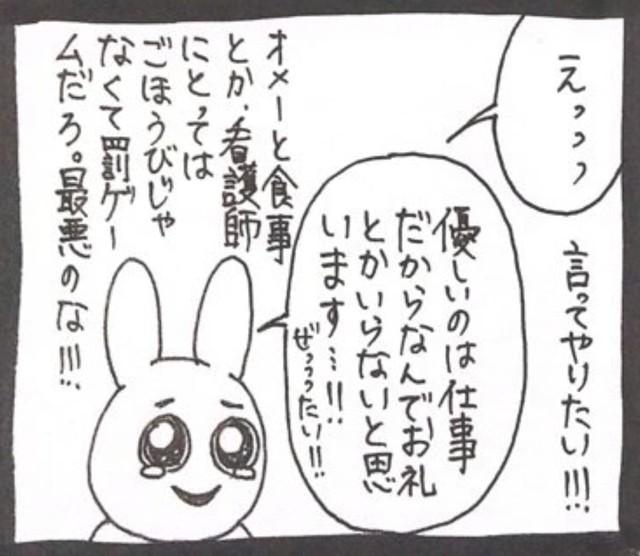 えっっっ
言ってやりたい!!!
優しいのは仕事
だからなんでお礼
とかいらないと思
います…!!
ぜっっったい!!
オメーと食事
とか、看護師
にとっては
ごほうびじゃ
なくて罰ゲー
ムだろ。最悪のな!!!